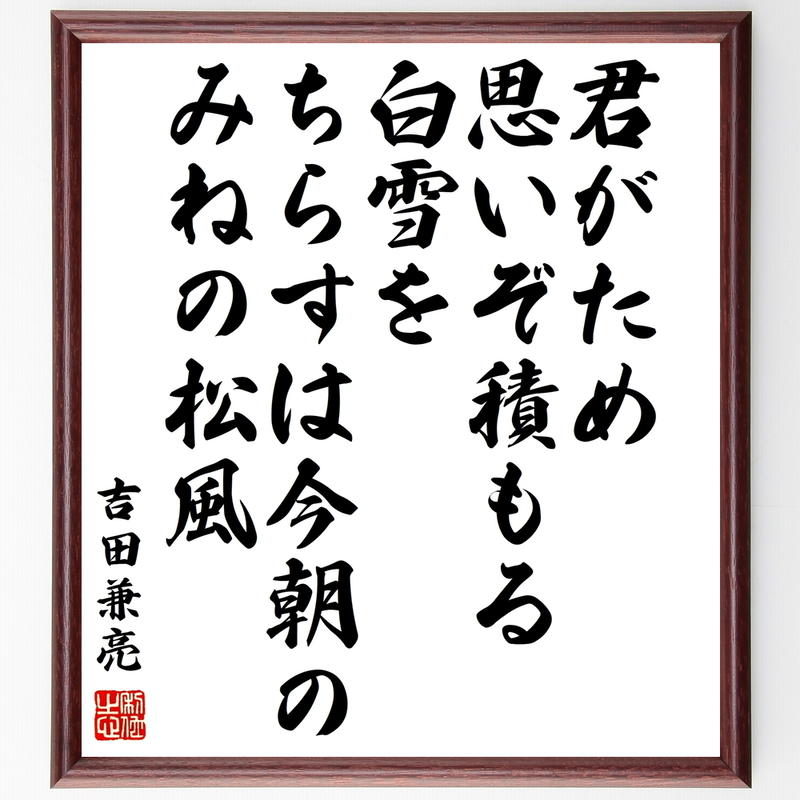 君がため
思いぞ積もる
白雪を
ちらすは今朝の
みねの松風
吉田兼亮